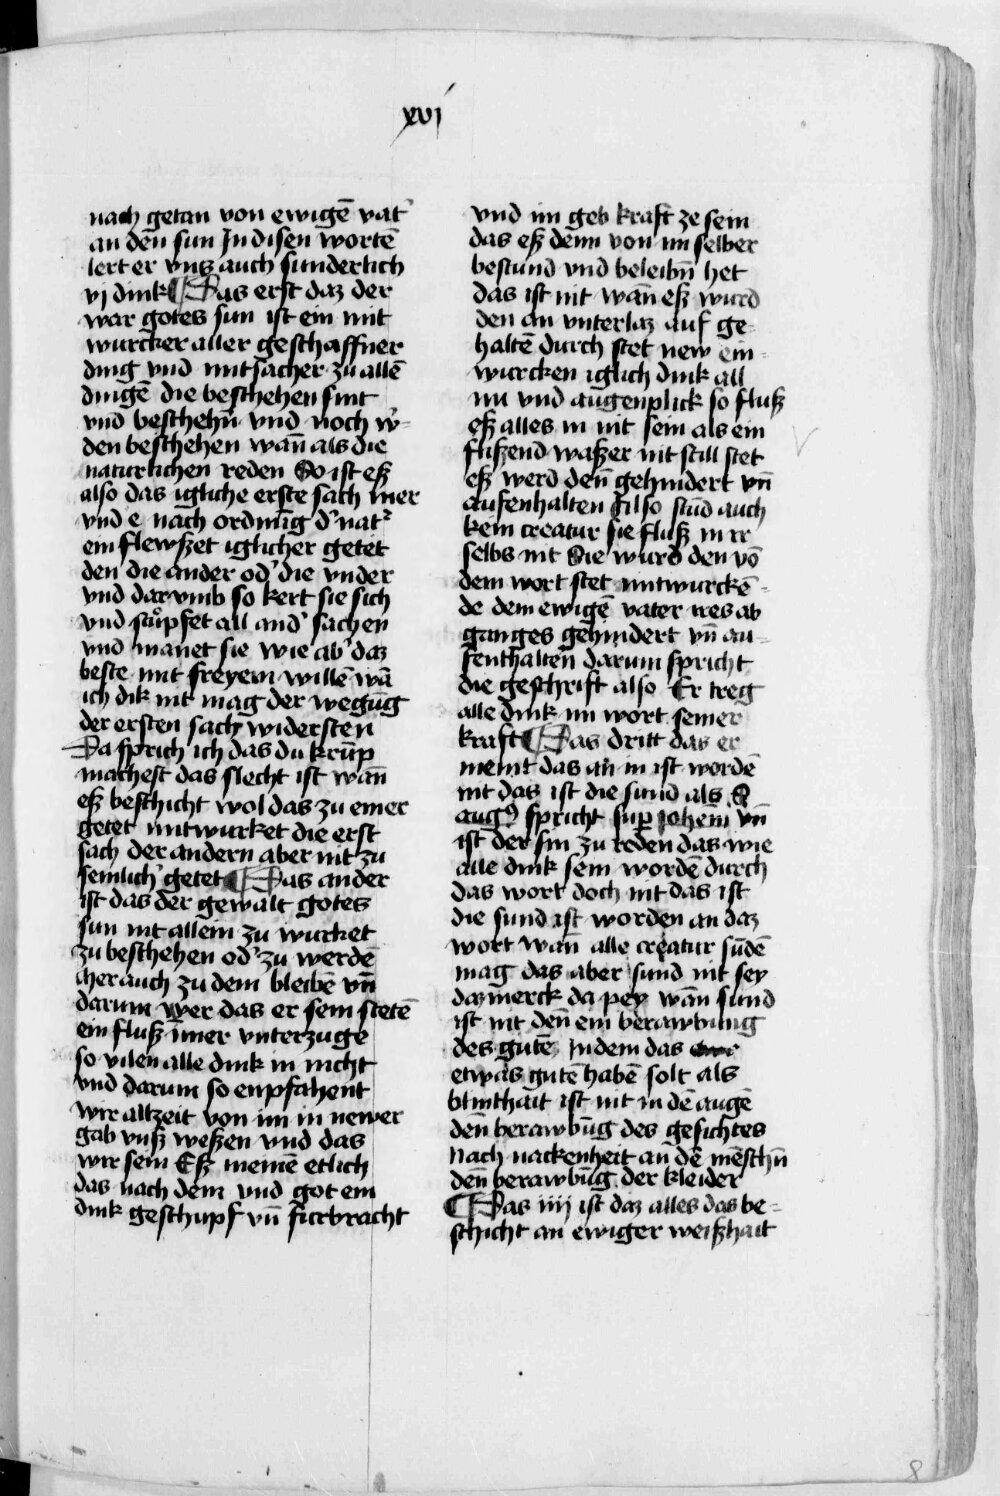 xvj
nach getan von ewigē vat'
an den sun Jn disen wortē
lert er vnß auch sunderlich
vj dink ¶ Das erst daz der
war gotes sun ist ein mit
wurcker aller geschaffner
ding vnd mitsacher zu allē
dingē die beschehen sint
vnd beschehn̄ vnd noch w'-
den beschehen wan̄ als die
naturlichen reden So ist eß
also das igliche erste sach mer
vnd e nach ordnūg d' nat'
ein flewßet iglicher getet
den die ander od' die vnder
vnd darvmb so kert sie sich
vnd stůpfet all and' sachen
vnd manet sie wie ab' daz
beste mit freyem willē wā
ich dik nit mag der wegūg
der ersten sach widersten
Da sprich ich das du krūp
machest das slecht ist wan̄
eß beschicht wol das zu einer
getet mitwurket die erst
sach der andern aber nit zu
semlich' getet ¶ Das ander
ist das der gewalt gotes
sun nit allein zu wurket
zu beschehen od' zu werdē
mer auch zu dem bleibē vn̄
darum wer das er sein stetē
ein fluß īmer vnterzuge
so vilen alle dink in nicht
vnd darum so enpfahent
wir altzeit von im in newer
gab vnß weßen vnd das
wir sein Eß meinē etlich
das nach dem vnd got ein
dink geschupf vn̄ furbracht
vnd im geb kraft ze sein
das eß denn von im selber
bestund vnd beleibn̄ het
das ist nit wan̄ eß wurd
den an vnterlaz auf ge-
haltē durch stet new ein-
wurcken iglich dink all
nu vnd augenplick so fluß
eß alles in nit sein als ein
flißend waßer nit still stet
eß werd den̄ gehindert vn̄
aufenhalten Also stūd auch
kein creatur sie fluß in ir
selbs nit Sie wurd den vō
dem wort stet mitwurckē-
de dem ewigē vater wes ab
ganges gehindert vn̄ au-
fenthalten̄ darum spricht
die geschrift also Er treg
alle dink im wort seiner
kraft ¶ Das dritt das er
meint das an in ist wordē
nit das ist die sund als S
aug9 spricht sup johēm vn̄
ist der sin zu reden das wie
alle dink sein wordē durch
das wort doch nit das ist
die sund ist worden an daz
wort wan̄ alle creatur sūdē
mag das aber sund nit sey
daz merck da pey wan̄ sund
ist nit den̄ ein berawbung
des gutē Jndem das
etwas gutē habē solt als
blinthait ist nit in dē augē
den̄ berawbūg des gesichtes
Nach nackenheit an dē mēschn̄
den̄ berawbūg der kleider
¶ Das iiij ist daz alles das be-
schicht an ewiger weißhait
8